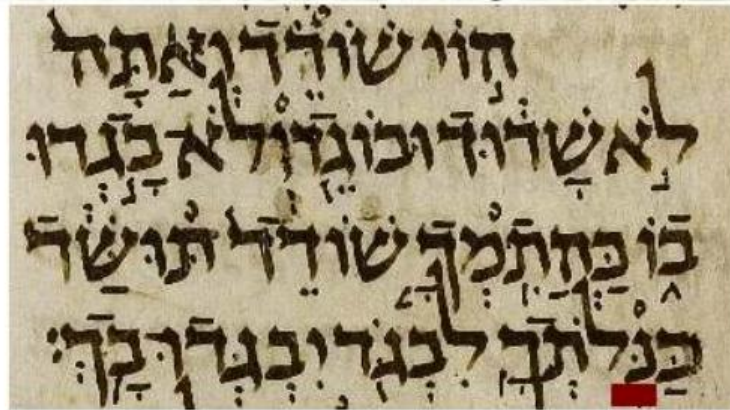 ה֣וֹי שׁוֹדֵ֗ד וְאַתָּה֙
לֹ֣א שָׁד֔וּד וּבוֹגֵ֖ד וְלֹא בָ֣גְדוּ
ב֑וֹ כַּהֲתִמְךָ֤ שׁוֹדֵד֙ תּוּשַּׁ֔ד
כַּנְּלֹתְךָ֥ לִבְגֹּ֖ד יִבְגְּדוּ בָֽךְ׃